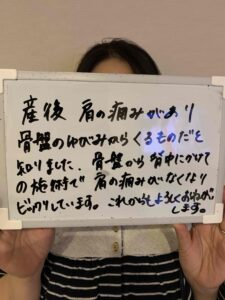 産後 肩の痛みがあり
骨盤のゆがみからくるものだと
知りました。骨盤から背中にかけて
の施術で 肩の痛みがなくなり
ビックリしています。これからもよろしくおねがい
します。